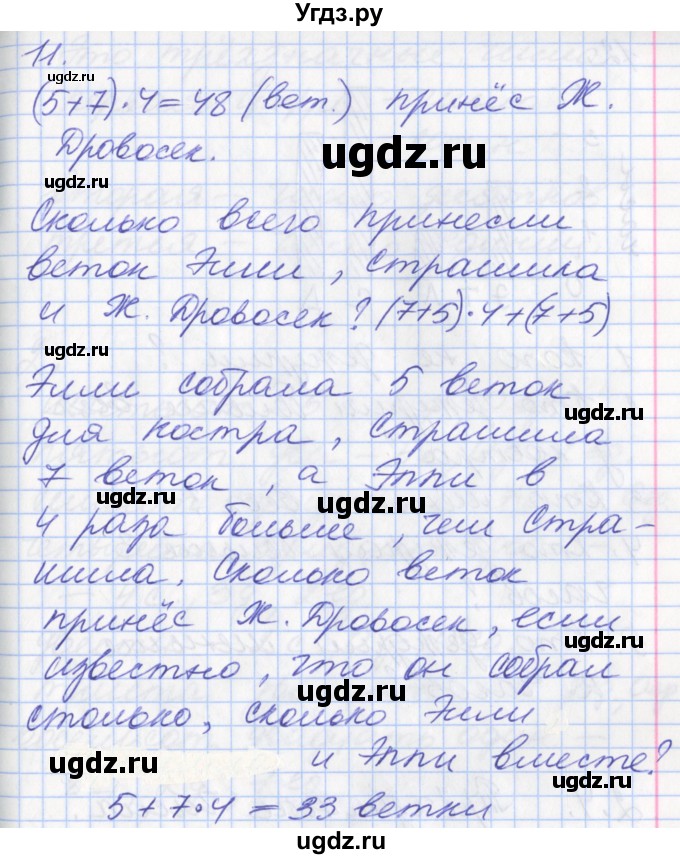 Угдз.ру
11.
(5+7)·4=48 (вет.) принёс Ж.
ugdz.ru
Дровосек.
ugdz.ru
ugdz.ru
Сколько всего принесли
ugdz.ru
веток Элли, Страшила
и Ж. Дровосек? (7+5)·4+(7+5)
ugdz.ru
Элли собрала 5 веток
для костра, Страшила
ugdz.ru
7 веток, а Эппи в
ugdz.ru
4 раза больше, чем Стра-
ugdz.ru
шила. Сколько веток
принёс Ж. Дровосек, если
ugdz.ru
известно, что он собрал
ugdz.ru
столько, сколько Элли
и Эппи вместе?
ugdz.ru
5+7·4=33 ветки
ugdz.ru
ugdz.ru